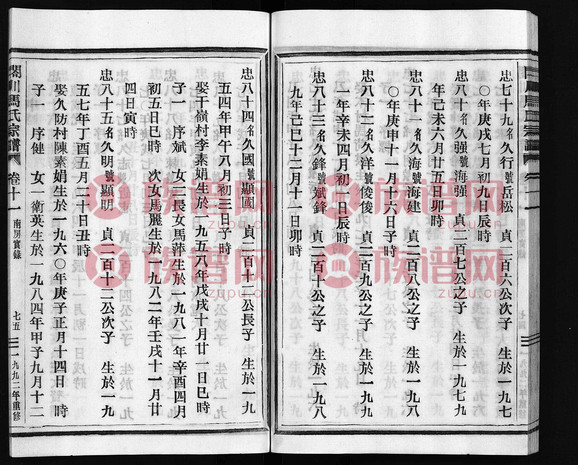 忠七十九名久行號岳松　貞二百六公次子　生於一九七
〇年庚戌七月初九日辰時
忠八十名久强號海强　貞二百七公之子　生於一九七九
年己未六月廿五日卯時
忠八十一名久海號海建　貞二百八公之子　生於一九八
〇年庚申十一月十六日子時
忠八十二名久洋號俊俊　貞二百九公之子　生於一九八
一年辛未四月初一日辰時
忠八十三名久鋒號斌鋒　貞二百十公之子　生於一九七
九年己巳十二月十一日卯時
忠八十四名久國號顯國　貞二百十二公長子　生於一九
五四年甲午八月初三日子時
娶干嶺村李素娟生於一九五八年戊戌十月廿一日巳時
子一　序斌　女二　長女馬萍生於一九八一年辛酉四月
初五日巳時　次女馬麗生於一九八二年壬戌十一月廿
四日寅時
忠八十五名久明號顯明　貞二百十二公次子　生於一九
五七年丁酉五月二十日丑時
娶久防村陳素娟生於一九六〇年庚子正月十四日　時
子一　序健　女一　衛英生於一九八四年甲子九月十二
閣川馬氏宗譜　卷十一　南房實錄　七五　一九九二年重修
族谱网
zupu.cn
族谱网
zupu.cn
族谱网
zupu.cn
族谱网
zupu.cn